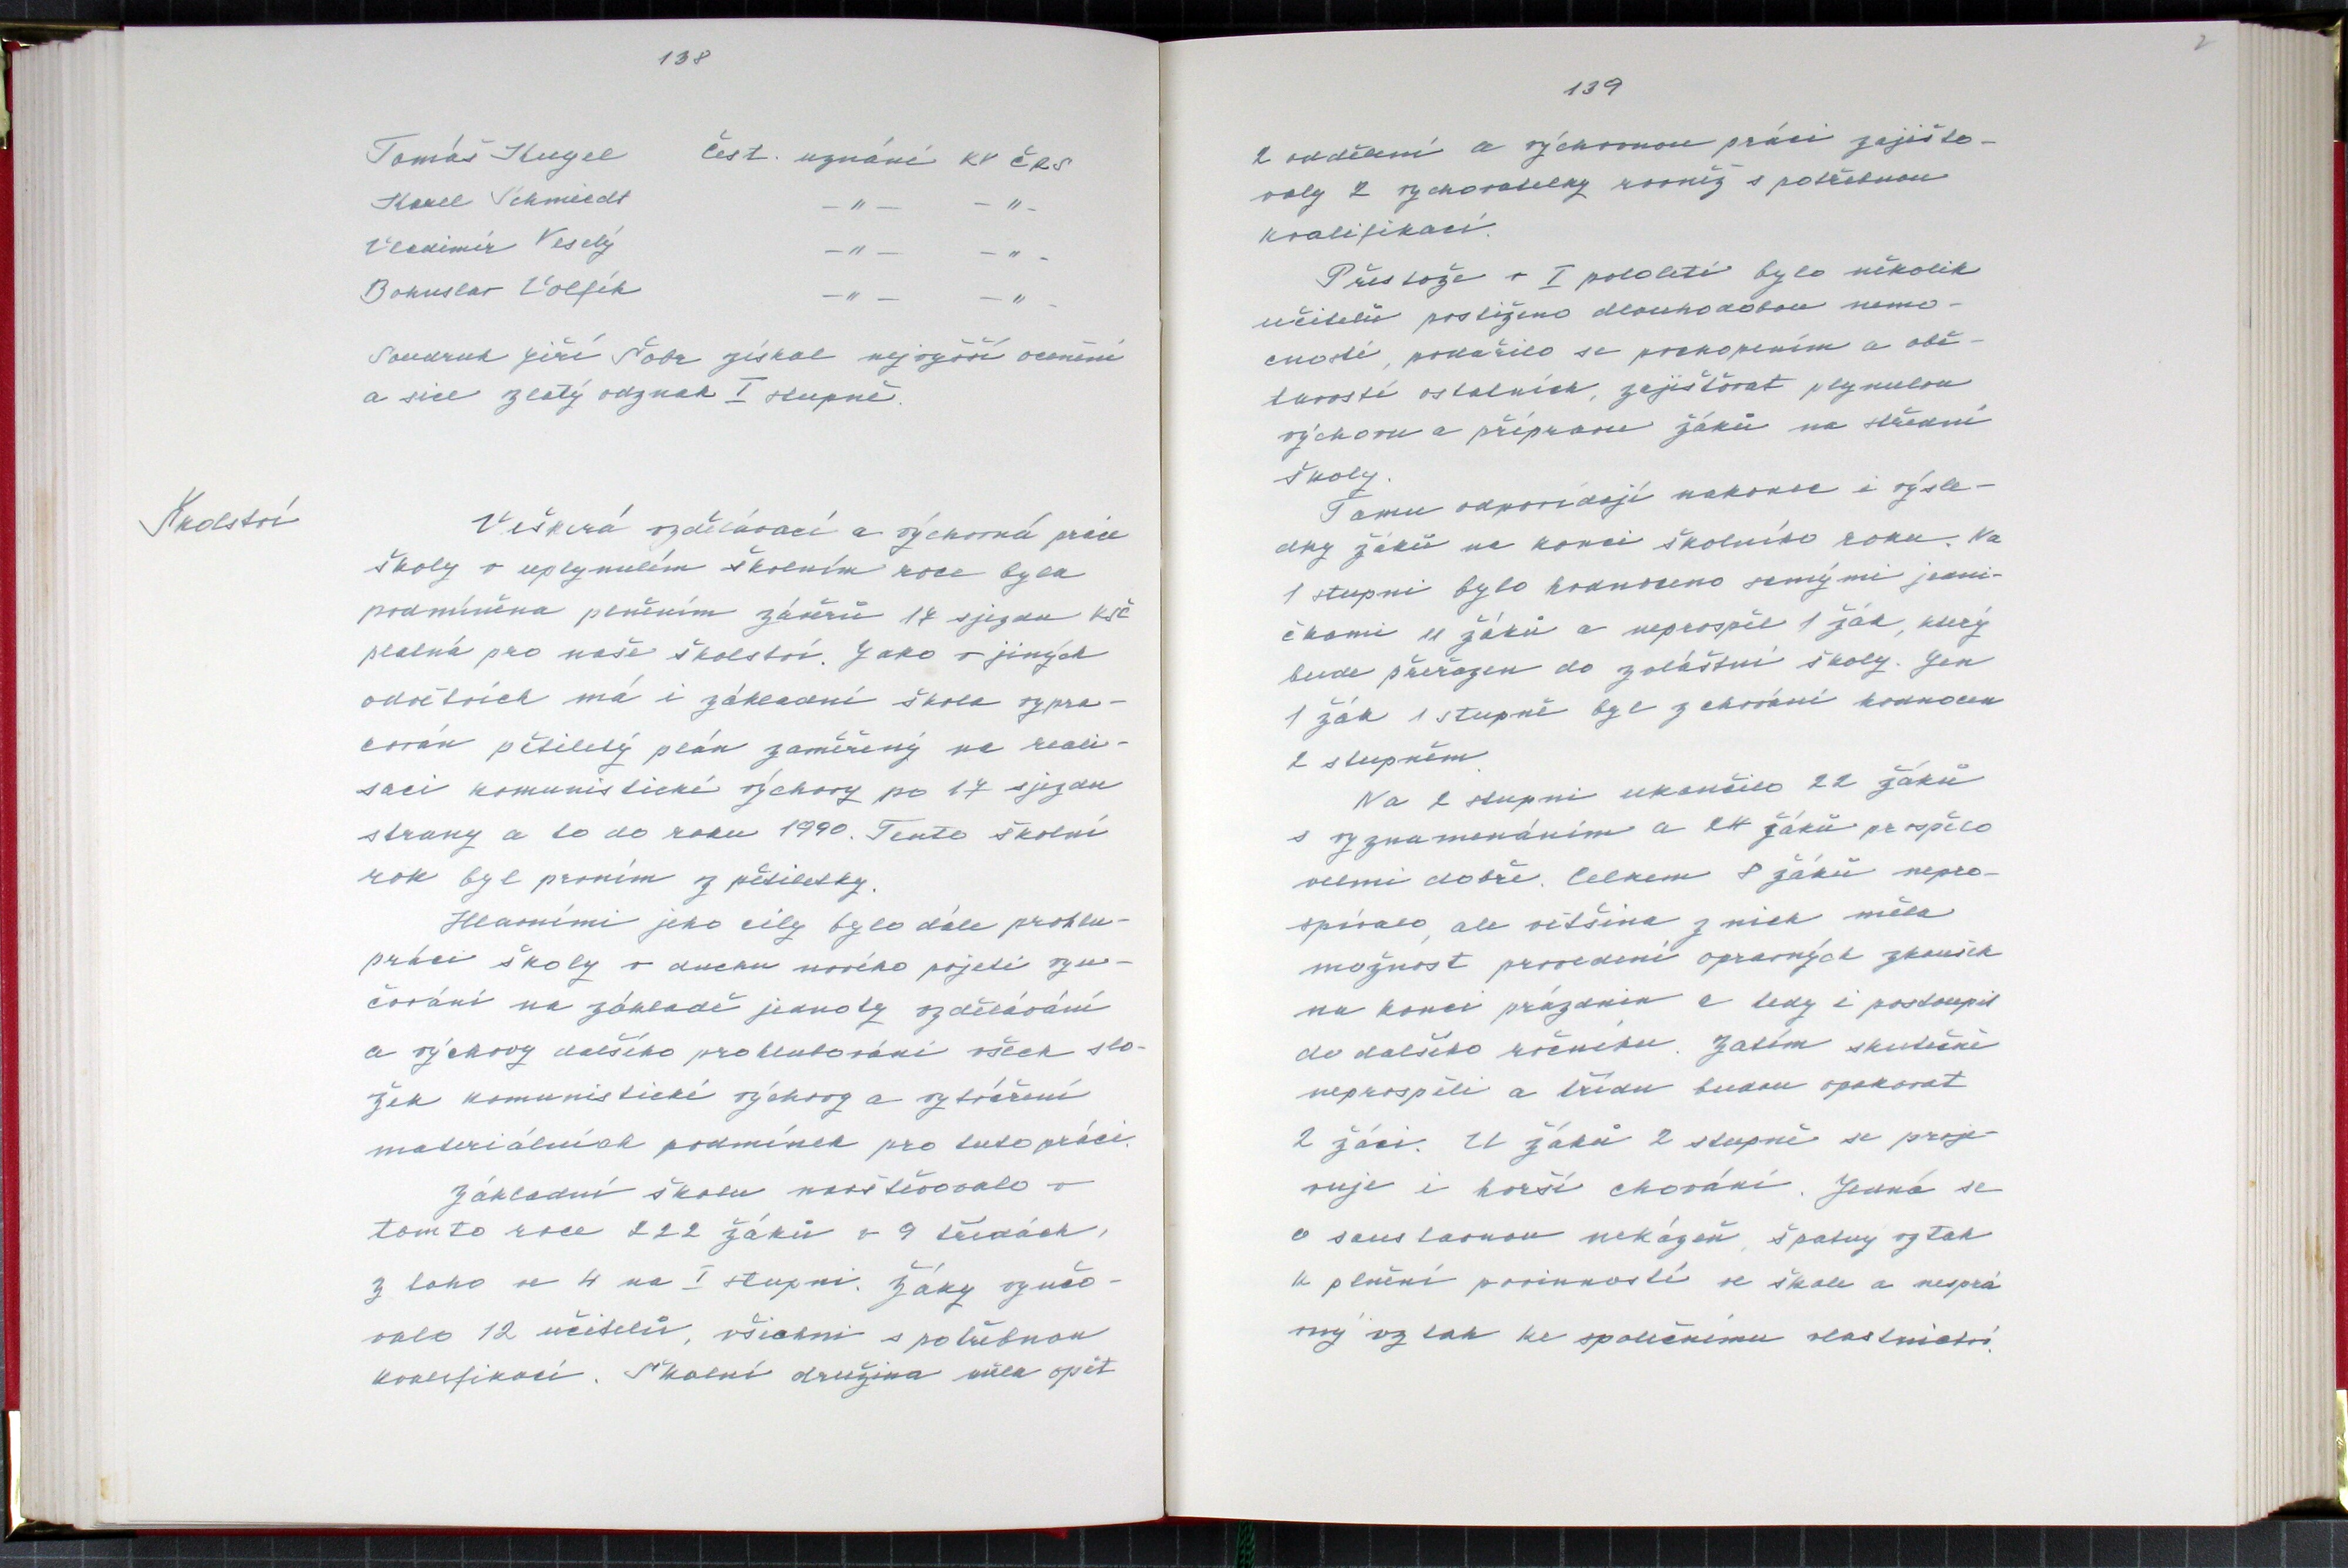 138
Tomáš Kugel čest. uznání KV ČRS
Karel Schmiedt —"— —"—
Vladimír Veselý —"— —"—
Bohuslav Volfík —"— —"—
Soudruh Jiří Šobr získal nejvyšší ocenění
a sice zlatý odznak I stupně.
Školství
Veškerá vzdělávací a výchovná práce
školy v uplynulém školním roce byla
podmíněna plněním závěrů 17 sjezdu KSČ
platná pro naše školství. Jako v jiných
odvětvích má i základní škola vypra-
cován pětiletý plán zaměřený na reali-
saci komunistické výchovy po 17 sjezdu
strany a to do roku 1990. Tento školní
rok byl prvním z pětiletky.
Hlavními jeho cíly bylo dále prohlu-
práci školy v duchu nového pojetí vyu-
čování na základě jednoty vzdělávání
a výchovy dalšího prohlubování všech slo-
žek komunistické výchovy a vytváření
materiálních podmínek pro tuto práci.
Základní školu navštěvovalo v
tomto roce 222 žáků v 9 třídách,
z toho ve 4 na I stupni. Žáky vyučo-
valo 12 učitelů, všichni s potřebnou
kvalifikací. Školní družina měla opět
2
139
2 oddělení a výchovnou práci zajišťo-
valy 2 vychovatelky rovněž s potřebnou
kvalifikací.
Přestože v I pololetí bylo několik
učitelů postiženo dlouhodobou nemo-
cností, podařilo se pochopením a obě-
tavostí ostatních, zajišťovat plynulou
výchovu a přípravu žáků na střední
školy.
Tomu odpovídají nakonec i výsle-
dky žáků na konci školního roku. Na
1 stupni bylo hodnoceno samými jedni-
čkami 11 žáků a neprospěl 1 žák, který
bude přeřazen do zvláštní školy. Jen
1 žák 1 stupně byl z chování hodnocen
2 stupněm.
Na 2 stupni ukončilo 22 žáků
s vyznamenáním a 24 žáků prospělo
velmi dobře. Celkem 8 žáků nepro-
spívalo, ale většina z nich měla
možnost provedení opravných zkoušek
na konci prázdnin a tedy i postoupit
do dalšího ročníku. Zatím skutečně
neprospěli a třídu budou opakovat
2 žáci. U žáků 2 stupně se proje-
vuje i horší chování. Jedná se
o soustavnou nekázeň, špatný vztah
k plnění povinností ve škole a nesprá
vný vztah ke společnému vlastnictví.